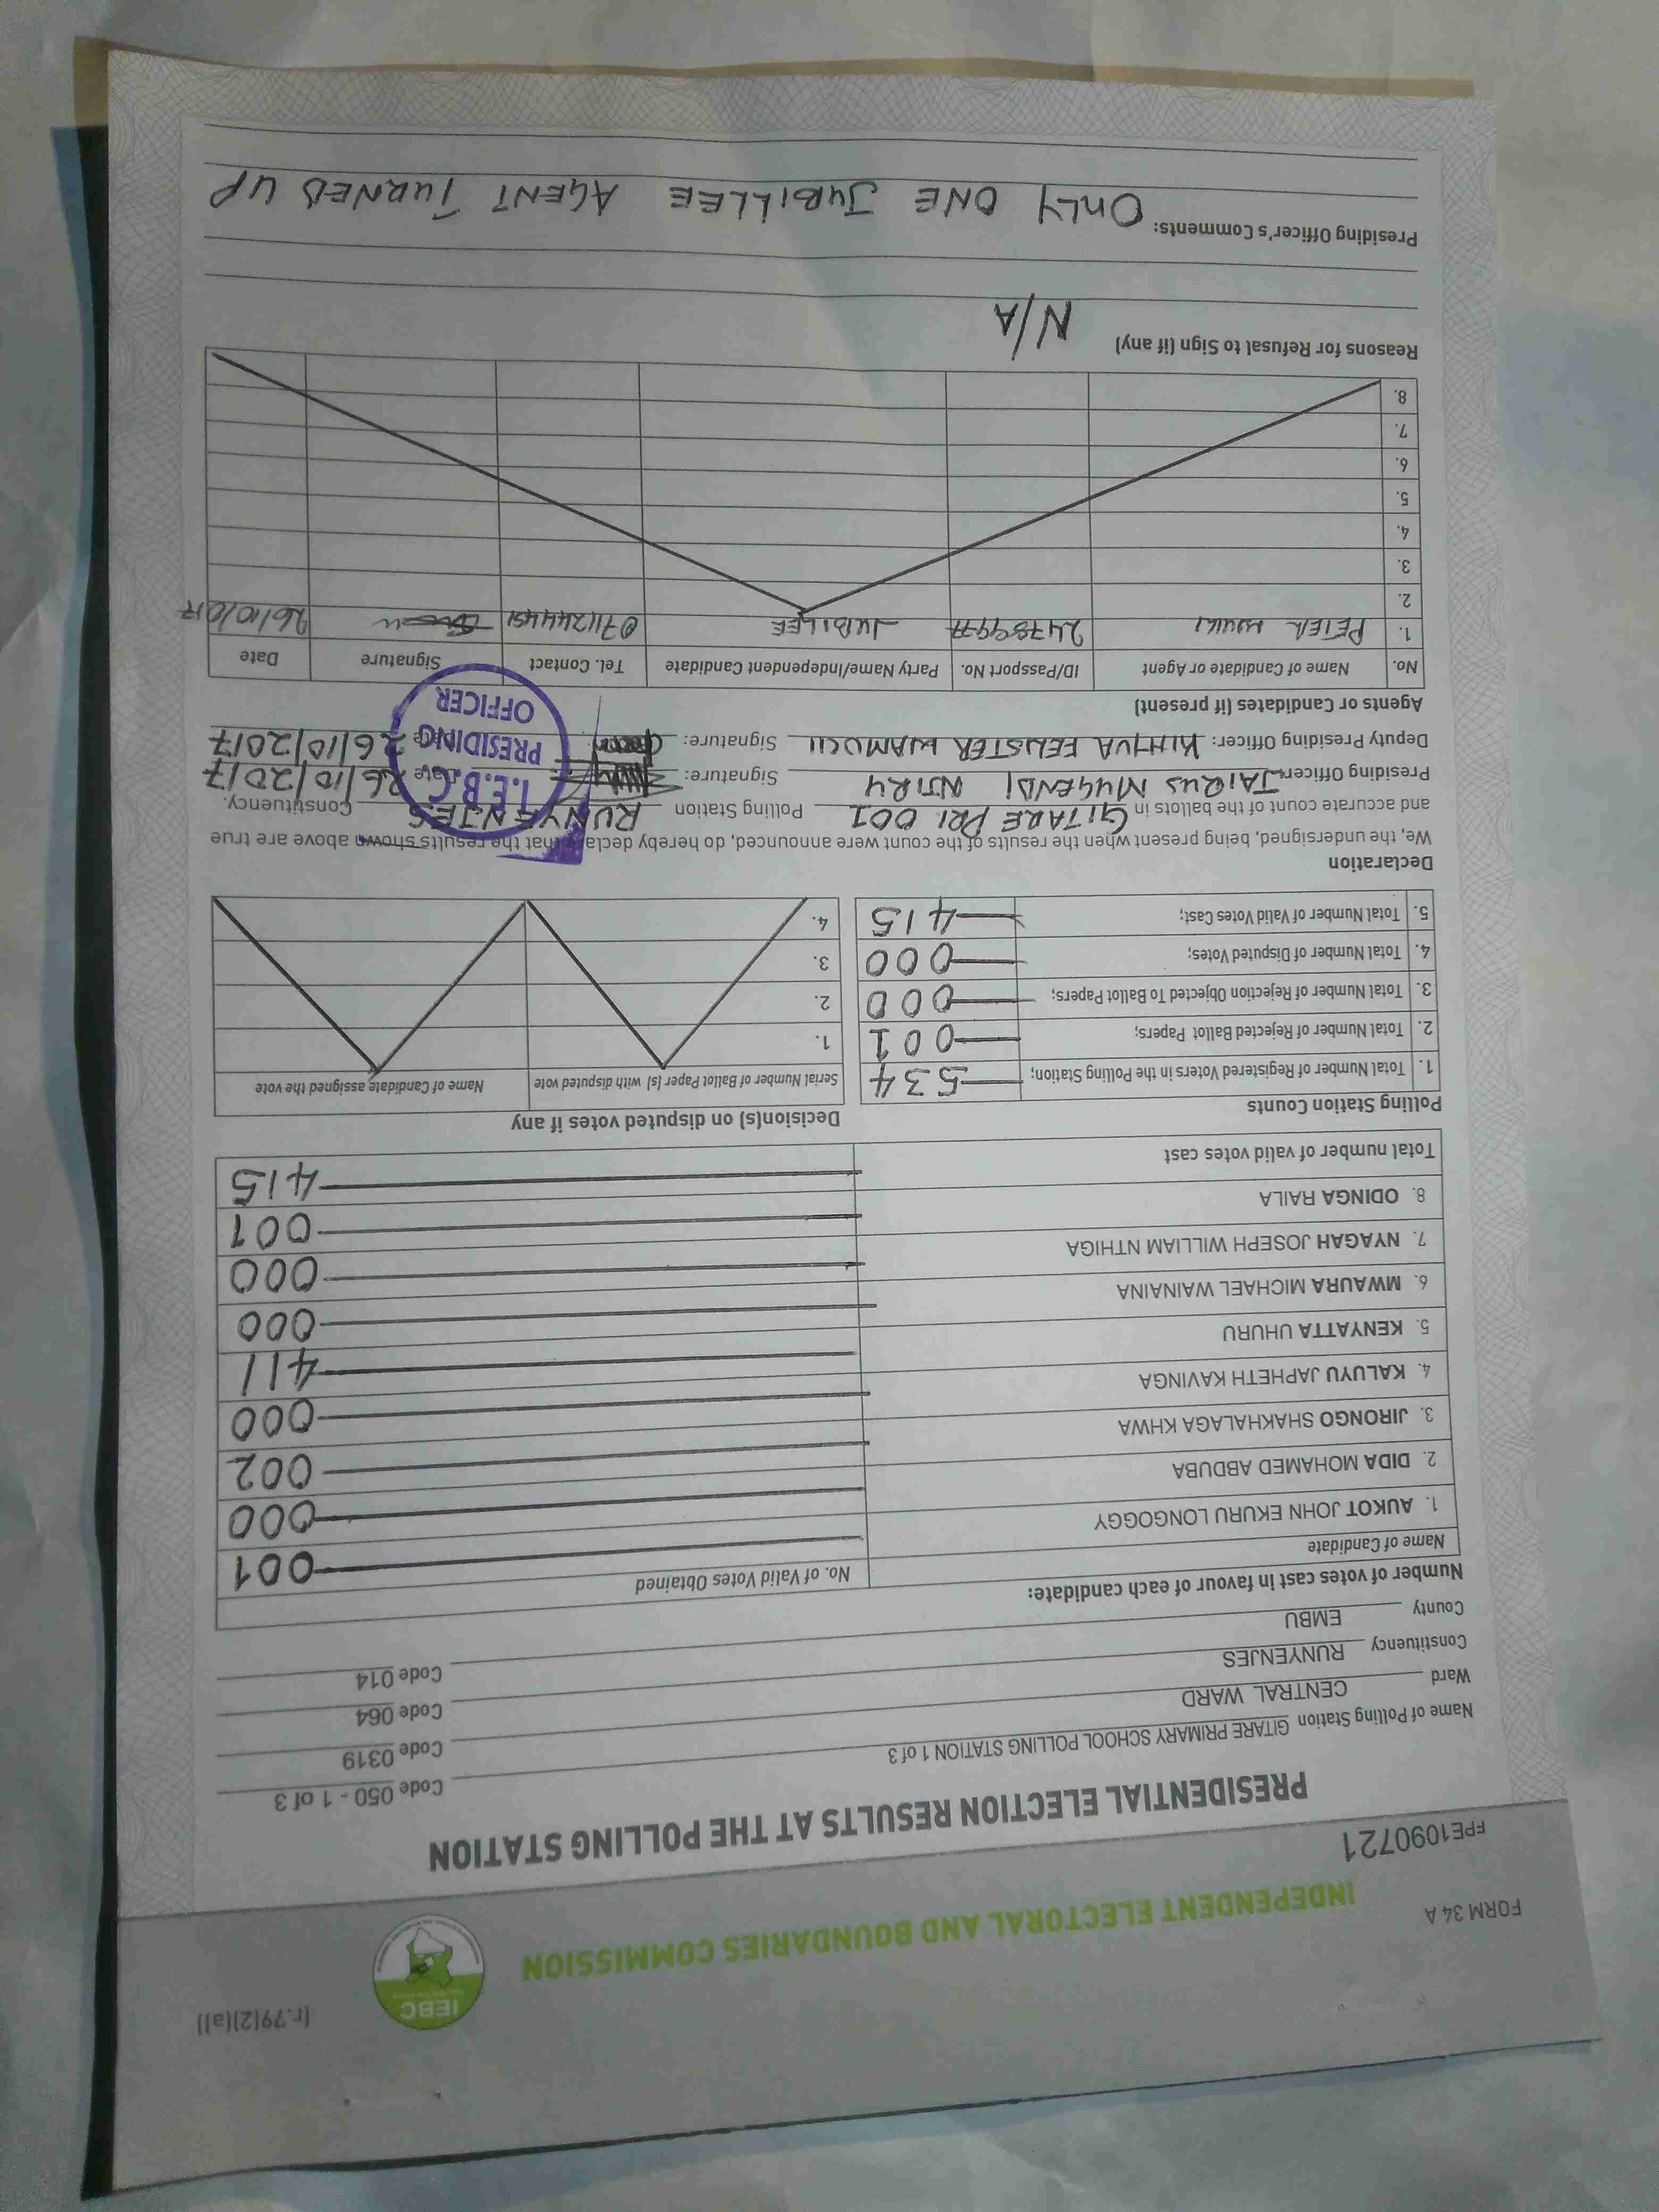 (r.79(2)(a))
IEBC
FORM 34 A
INDEPENDENT ELECTORAL AND BOUNDARIES COMMISSION
FPE1090721
PRESIDENTIAL ELECTION RESULTS AT THE POLLING STATION
Name of Polling Station GITARE PRIMARY SCHOOL POLLING STATION 1 of 3 Code 050 - 1 of 3
Ward CENTRAL WARD Code 0319
Constituency RUNYENJES Code 064
County EMBU Code 014
Number of votes cast in favour of each candidate:
Name of Candidate No. of Valid Votes Obtained
1. AUKOT JOHN EKURU LONGOGGY 001
2. DIDA MOHAMED ABDUBA 000
3. JIRONGO SHAKHALAGA KHWA 002
4. KALUYU JAPHETH KAVINGA 000
5. KENYATTA UHURU 411
6. MWAURA MICHAEL WAINAINA 000
7. NYAGAH JOSEPH WILLIAM NTHIGA 000
8. ODINGA RAILA 001
Total number of valid votes cast 415
Polling Station Counts
1. Total Number of Registered Voters in the Polling Station; 534
2. Total Number of Rejected Ballot Papers; 001
3. Total Number of Rejection Objected To Ballot Papers; 000
4. Total Number of Disputed Votes; 000
5. Total Number of Valid Votes Cast; 415
Decision(s) on disputed votes if any
Serial Number of Ballot Paper (s) with disputed vote Name of Candidate assigned the vote
1.
2.
3.
4.
Declaration
We, the undersigned, being present when the results of the count were announced, do hereby declare that the results shown above are true
and accurate count of the ballots in GITARE PRI 001 Polling Station RUNYENJES Constituency.
Presiding Officer: JAIRUS MUGENDI NJIRU Signature: Date 26/10/2017
Deputy Presiding Officer: KITHUA FELISTER WAMUCII Signature: Date 26/10/2017
I.E.B.C.
PRESIDING
OFFICER
Agents or Candidates (if present)
No. Name of Candidate or Agent ID/Passport No. Party Name/Independent Candidate Tel. Contact Signature Date
1. PETER JUBILEE
2.
3.
4.
5.
6.
7.
8.
Reasons for Refusal to Sign (if any) N/A
Presiding Officer's Comments: ONLY ONE JUBILLEE AGENT TURNED UP